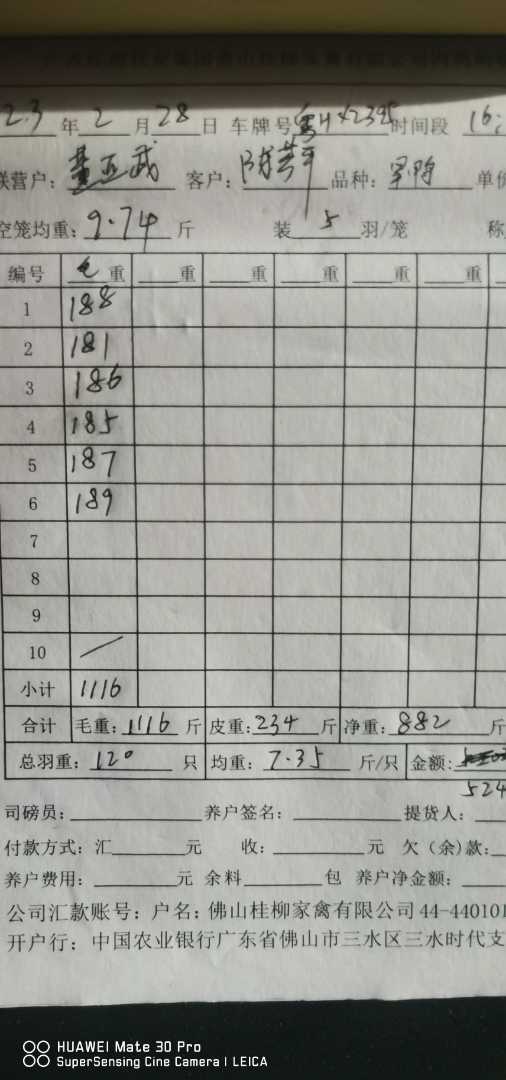 23年2月28日 车牌号 粤H 时间段 16:
联营户: 董亚武 客户: 陈芸平 品种: 单价
空笼均重: 9.74 斤 装 5 羽/笼 称
编号 毛重 重 重 重 重 重
1 188
2 181
3 186
4 185
5 187
6 189
7
8
9
10
小计 1116
合计 毛重: 1116 斤 皮重: 234 斤 净重: 882 斤
总羽重: 120 只 均重: 7.35 斤/只 金额:
524
司磅员: 养户签名: 提货人:
付款方式: 汇 元 收: 元 欠(余)款:
养户费用: 元 余料 包 养户净金额:
公司汇款账号: 户名: 佛山桂柳家禽有限公司 44-440101
开户行: 中国农业银行广东省佛山市三水区三水时代支
HUAWEI Mate 30 Pro
SuperSensing Cine Camera | LEICA